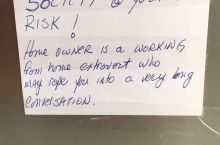 RISK!
HOME OWNER IS A WORKING
from home extrovert who
may rope you into a very long
conversation.